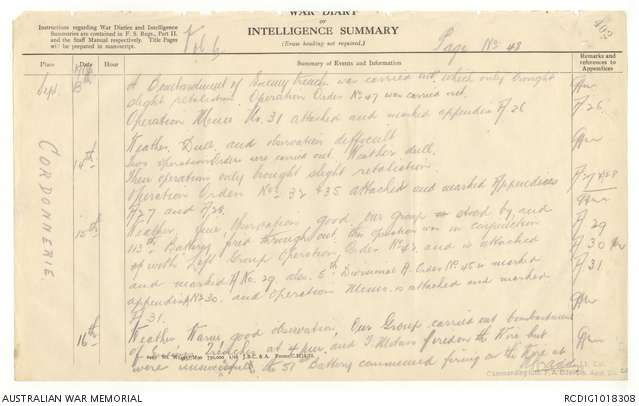 WAR DIARY
or
INTELLIGENCE SUMMARY
(Erase heading not required.)
Instructions regarding War Diaries and Intelligence
Summaries are contained in F. S. Regs., Part II.
and the Staff Manual respectively. Title Pages
will be prepared in manuscript.
Vol 6
Page No 48
402
Place
Date
Hour
Summary of Events and Information
Remarks and
references to
Appendices
CORDONNERIE
Sept. 13th A Bombardment of Enemy trench was carried out, which only brought
slight retaliation. Operation Order No 47 was carried out.
Operation Memo No. 31 attached and marked appendix F 26
F 26
14th Weather Dull and observation difficult
Two operation Order were carried out. Weather dull.
These operation only brought slight retaliation.
Operation Orders Nos 32 & 35 attached and marked Appendices
F 27 and F 28.
F 27 & 28
15th Weather fine Observation good. Our group stood by, and
113th Battery fired throughout, the question was in conjunction
with Left Group Operation Order No 42 and is attached
and marked No. 29 also 5th Divisional A. Order No 45 is marked
appendix No 30. and Operation Memo is attached and marked
F 31.
F 29
F 30
F 31
16th Weather Warm, good observation, Our Group carried out bombardment
of Enemy Trenches at 4 pm. and T. Mortars fired on the Wire but
were unsuccessful the 51st Battery commenced firing on the Wire at
AUSTRALIAN WAR MEMORIAL
RCDIG1018308